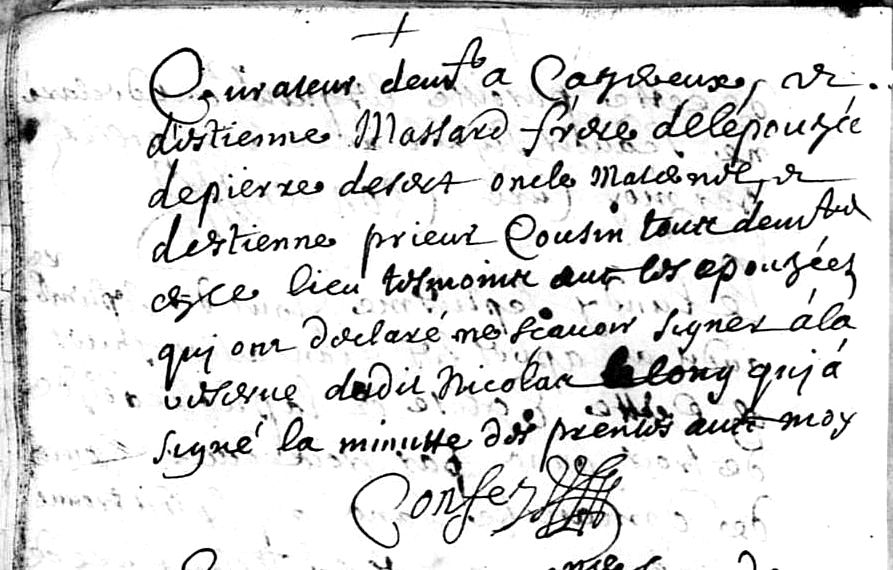 Curateur demt a Cayeux, &
destienne Massard frere delépouzée
depierre deset oncle maternel, &
destienne prieur Cousin tout demt
esce lieu tesmoins auec les epouzéez
quj ont declaré ne scauoir signer á la
reserue dudit Nicolas lelong quj á
signé la minutte des pr̃entes auec moy